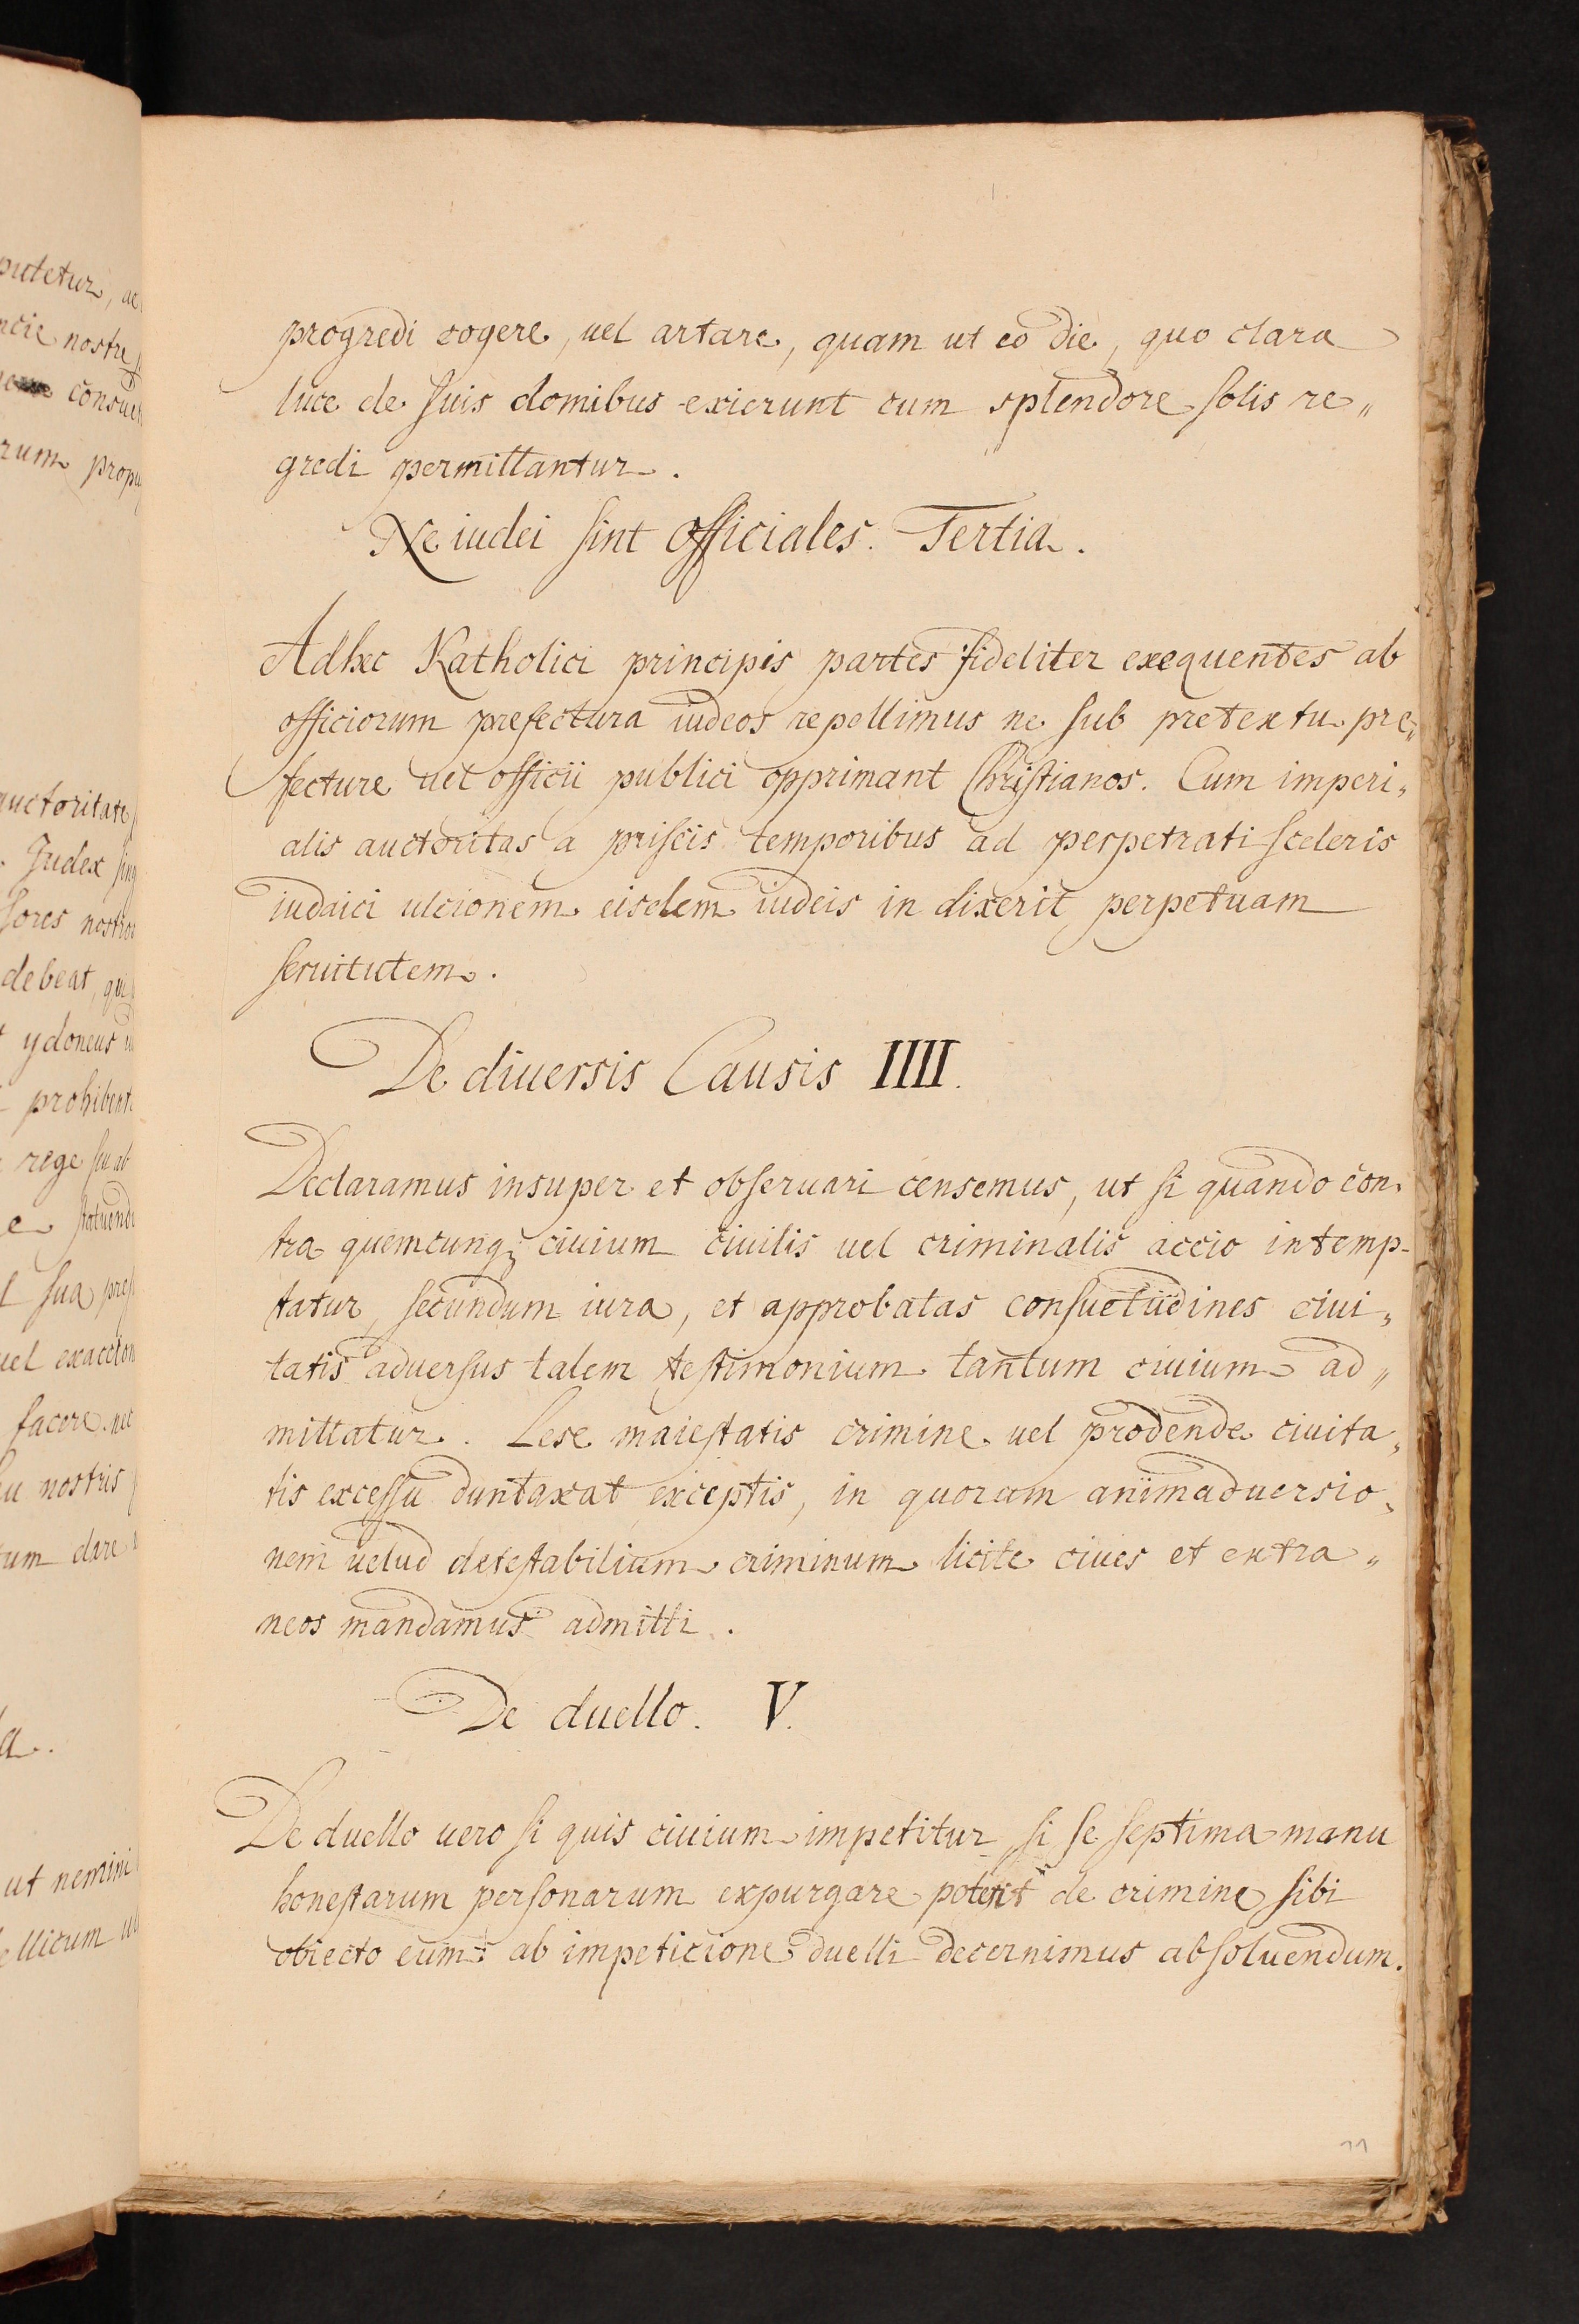 progredi cogere, uel artare, quam ut eo die, quo clara
luce de suis domibus exierunt cum splendore solis re„
gredi permittantur.
Ne iudei sint officiales. Tertia.
Adhec Katholici principis partes fideliter exequentes ab
officiorum prefectura iudeos repellimus ne sub pretextu pre„
fecture uel officii publici opprimant Christianos. Cum imperi„
alis auctoritas a priscis temporibus ad perpetrati sceleris
iudaici ulcionem eisdem iudeis in dixerit perpetuam
seruitutem.
De diuersis Causis IIII.
Declaramus insuper et obseruari censemus, ut si quando con„
tra quemcunq; ciuium ciuilis uel criminalis accio intemp-
tatur, secundum iura, et approbatas consuetudines ciui„
tatis aduersus talem testimonium tantum ciuium ad„
mittatur. Lese maiestatis crimine uel prodende ciuita„
tis excessu duntaxat exceptis, in quorum animaduersio„
nem uelud detestabilium criminum licite ciues et extra„
neos mandamus admitti.
De duello. V.
De duello uero si quis ciuium impetitur, si se septima manu
honestarum personarum expurgare poterit de crimine sibi
obiecto eum ab impeticione duelli decernimus absoluendum.
11
putetur, ac
ncie nostre
consuet
rum propu
auctoritate
Judex sing
sores nostros
debeat, qui
ydoneus
prohibent
rege seu ab
e statuend
l sua pres
uel exaccion
facere nec
eu nostris
tum dare
a.
ut nemini
ellicum